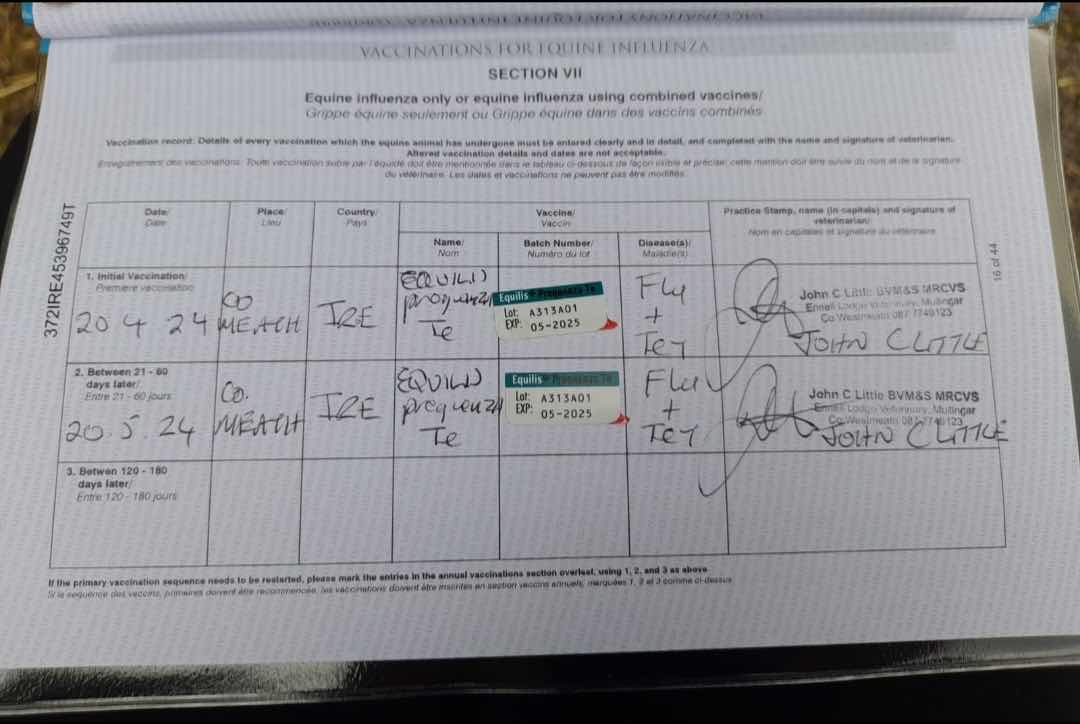 VACCINATIONS FOR EQUINE INFLUENZA
SECTION VII
Equine influenza only or equine influenza using combined vaccines/
Grippe équine seulement ou Grippe équine dans des vaccins combinés
Vaccination record: Details of every vaccination which the equine animal has undergone must be entered clearly and in detail, and completed with the name and signature of veterinarian.
Altered vaccination details and dates are not acceptable.
Enregistrement des vaccinations: Toute vaccination subie par l'équidé doit être mentionnée dans le tableau ci-dessous de façon lisible et précise; cette mention doit être suivie du nom et de la signature
du vétérinaire. Les dates et vaccinations ne peuvent pas être modifiés.
372IRE45396749T
16 of 44
Date/
Date
Place/
Lieu
Country/
Pays
Vaccine/
Vaccin
Name/
Nom
Batch Number/
Numéro du lot
Disease(s)/
Maladie(s)
Practice Stamp, name (in capitals) and signature of
veterinarian/
Nom en capitales et signature du vétérinaire
1. Initial Vaccination/
Premiere vaccination
20 4 24
CO
MEATH
IRE
EQUILIS
prequenza
Te
Equilis Prequenza Te
Lot: A313A01
EXP: 05-2025
Flu
+
TET
John C Little BVM&S MRCVS
Ennell Lodge Veterinary, Mullingar
Co Westmeath 087 7749123
JOHN C LITTLE
2. Between 21 - 60
days later/
Entre 21 - 60 jours
20.5.24
CO.
MEATH
IRE
EQUILIS
prequenza
Te
Equilis Prequenza Te
Lot: A313A01
EXP: 05-2025
Flu
+
TET
John C Little BVM&S MRCVS
Ennell Lodge Veterinary, Mullingar
Co Westmeath 087 7749123
JOHN C LITTLE
3. Betwen 120 - 180
days later/
Entre 120 - 180 jours
If the primary vaccination sequence needs to be restarted, please mark the entries in the annual vaccinations section overleaf, using 1, 2, and 3 as above
Si la sequence des vaccins, primaires doivent être recommencée, les vaccinations doivent être inscrites en section vaccins annuels, marquées 1, 2 et 3 comme ci-dessus